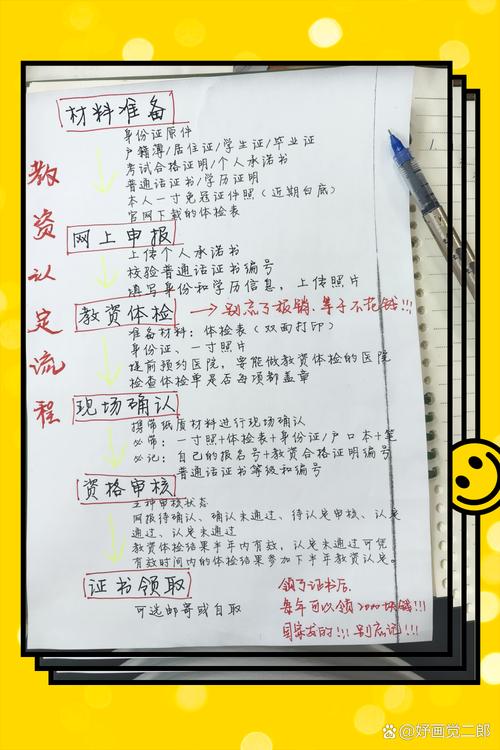 教资认定流程
材料准备
身份证原件
户籍簿/居住证/学生证/毕业证
考试合格证明/个人承诺书
普通话证书/学历证明
本人一寸免冠证件照（近期白底）
官网下载的体检表
网上申报
上传个人承诺书
校验普通话证书编号
填写身份和学历信息，上传照片
教资体检 → 别忘了报销，等于不花钱!!!
准备材料：体检表（双面打印）
身份证、一寸照片
提前预约医院，要能做教资体检的医院
检查体检单是否每项都盖章
现场确认
携带纸质材料进行现场确认
必带：一寸照+体检表+身份证/户口本+笔
必记：自己的报名号+教资合格证明编号
普通话证书等级和编号
资格审核
五种审核状态
网报待确认、确认未通过、待认定审核、认定
通过、认定未通过
教资体检结果半年内有效，认定未通过可凭
有效时间内的体检结果参加下半年教资认定。
证书领取
可选邮寄或自取
领了证书后
每年可以领2000块钱!!!
国家发的!!! 别忘记!!!
@好画觉二郎